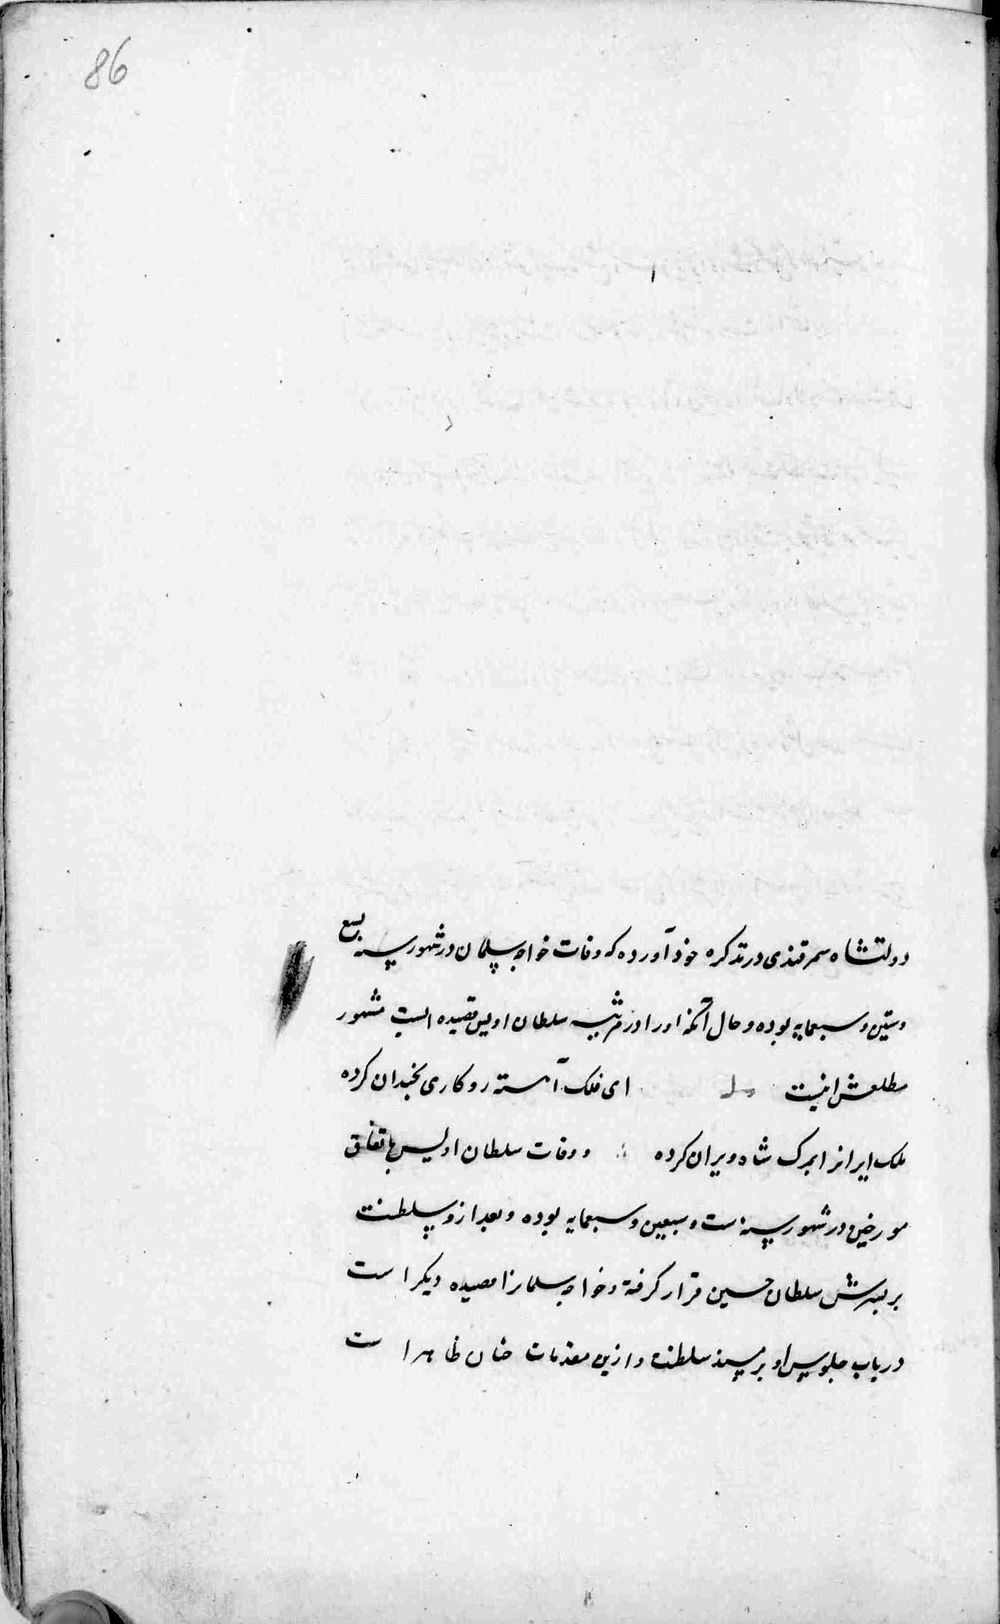 86
دولتشاه سمرقندی در تذکره خود آورده که وفات خواجه سلمان در شهور سنه تسع
وستین و سبعمایه بوده و حال آنکه او را در مرثیه سلطان اویس قصیده ایست مشهور
مطلعش اینست ای فلک آهسته رو کاری نخبدان کرده
ملک ایرانرا بمرک شاه ویران کرده و وفات سلطان اویس باتفاق
مورخین در شهور سنه ست و سبعین و سبعمایه بوده و بعد ازو سلطنت
بر پسرش سلطان حسین قرار کرفته و خواجه سلمانرا قصیده دیکر است
در باب جلوس او بر مسند سلطنت و ازین مقدمات چنان ظاهر است